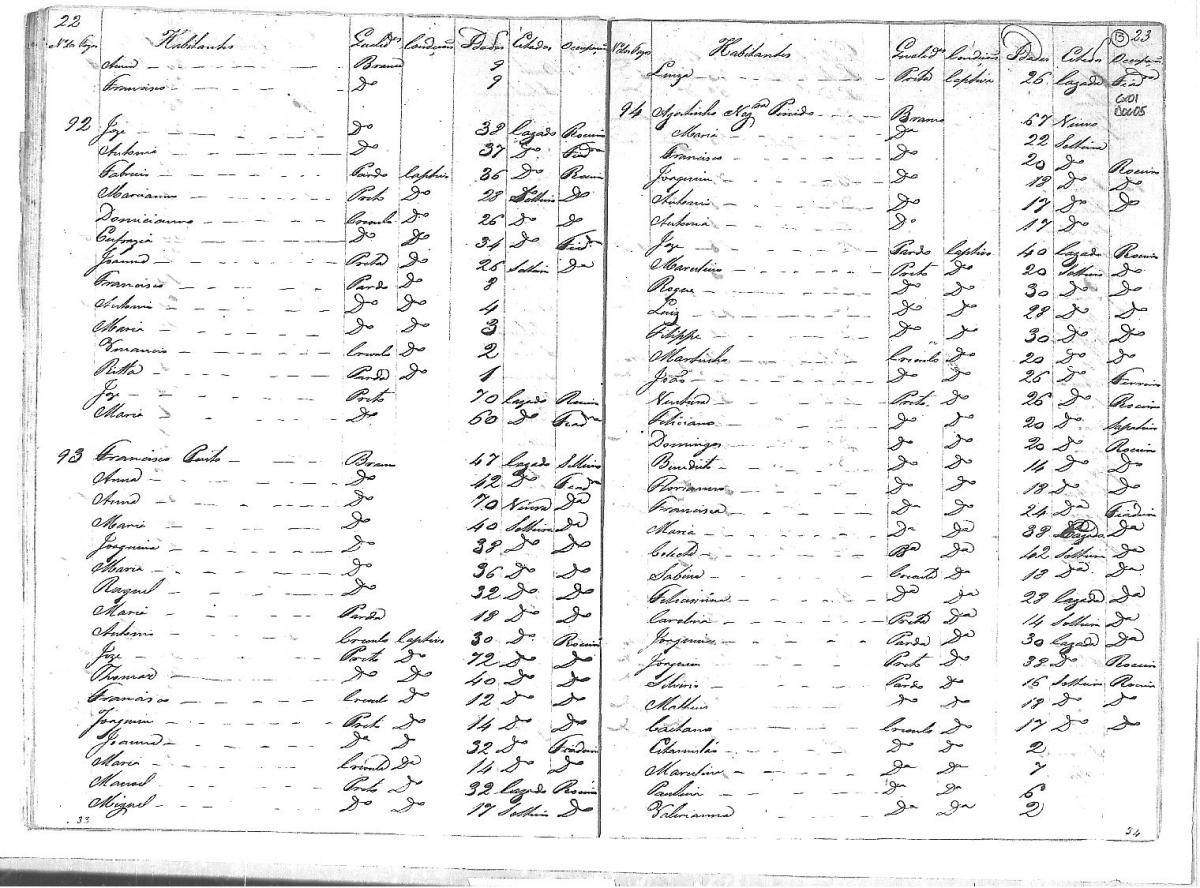 22
Nº dos Fogos Habitantes Qualid.es Condição Idades Estados Ocupação
Anna Branca 9
Francisco Dº 9
92 Joze Dº 38 Cazado Roceiro
Antonia Dº 37 Dº Fiadª
Fabricio Pardo Captivo 36 Dº Roceiro
Marianno Preto Dº 28 Solteiro Dº
Domicianno Crioulo Dº 26 Dº Dº
Eufrazia Dº Dº 34 Dº Fiadª
Joanna Preta Dº 26 Solteira Dª
Francisco Pardo Dº 8
Antonio Dº Dº 4
Maria Dº Dº 3
Venancio Crioulo Dº 2
Ritta Parda Dº 1
Joze Preto 70 Cazado Roceiro
Maria Dº 60 Dº Fiadª
93 Francisco Branco 47 Cazado Selleiro
Anna Dº 42 Dº Fiadª
Anna Dº 70 Viuva Dª
Maria Dº 40 Solteira Dª
Joaquina Dº 38 Dº Dº
Maria Dº 36 Dº Dº
Raquel Dº 32 Dº Dº
Maria Parda 18 Dº Dº
Antonio Crioulo Captivo 30 Dº Roceiro
Joze Preto Dº 72 Dº Dº
Thomaz Dº Dº 40 Dº Dº
Francisco Crioulo Dº 12 Dº Dº
Joaquim Preto Dº 14 Dº Dº
Joanna Dª Dº 32 Dº Fiadeira
Maria Crioula Dª 14 Dº Dº
Manoel Preto Dº 32 Cazado Roceiro
Miguel Dº Dº 17 Solteiro Dº
33
3 23
Nº dos Fogos Habitantes Qualid.es Condição Idades Estados Ocupação
Luiza Preta Captiva 26 Cazada Fiadª
CX01
DOC05
94 Agostinho Nogrª Penido Branco 67 Viuvo
Maria Dª 22 Solteira
Francisco Dº 20 Dº Roceiro
Joaquim Dº 18 Dº Dº
Antonio Dº 17 Dº Dº
Antonia Dº 17 Dº
Joze Pardo Captivo 40 Cazado Roceiro
Marcelino Preto Dº 20 Solteiro Dº
Roque Dº Dº 30 Dº Dº
Luiz Dº Dº 28 Dº Dº
Filippe Dº Dº 30 Dº Dº
Martinho Crioulo Dº 20 Dº Dº
João Dº Dº 26 Dº Ferreiro
Ventura Preto Dº 26 Dº Roceiro
Feliciano Dº Dº 20 Dº Sapateiro
Domingos Dº Dº 20 Dº Roceiro
Benedicto Dº Dº 14 Dº Dº
Florianno Dº Dº 18 Dº Dº
Francisca Dª Dª 24 Dª Fiadeira
Maria Dª Dª 38 Cazada Dª
Dª 42 Solteira Dª
Sabina Crioula Dª 13 Dª Dª
Dª Dª 28 Cazada Dª
Carolina Preta Dª 14 Solteira Dª
Joaquina Parda Dª 30 Cazada Dª
Joaquim Preto Dº 38 Dº Roceiro
Silverio Pardo Dº 16 Solteiro Roceiro
Matheus Dº Dº 12 Dº Dº
Caetano Crioulo Dº 17 Dº Dº
Estanislao Dº Dº 2
Marcelina Dª Dª 7
Paulina Dª Dª 6
Valerianna Dª Dª 2
34